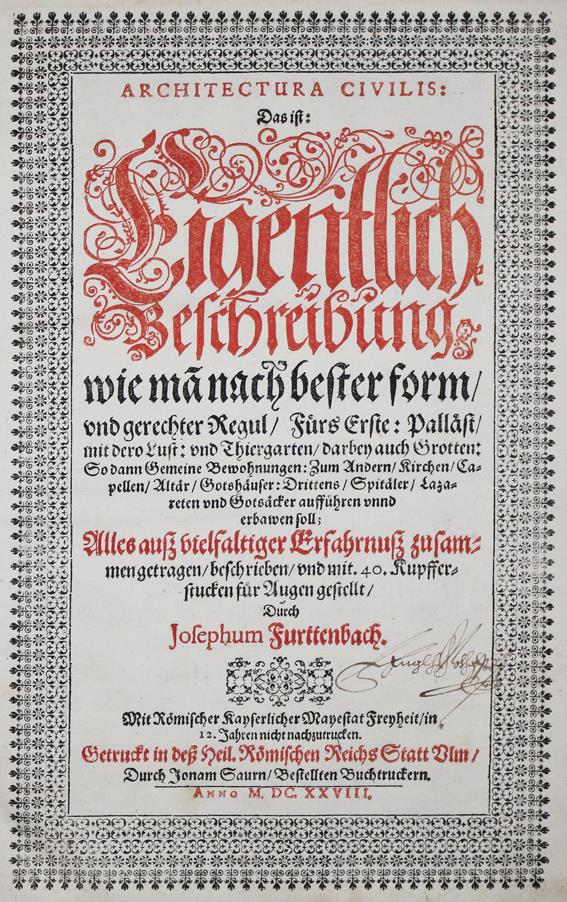 ARCHITECTURA CIVILIS:
Das ist:
Eigentliche
Beschreibung,
wie mā nach bester form/
vnd gerechter Regul/ Fürs Erste: Palläst/
mit dero Lust: vnd Thiergarten/ darbey auch Grotten:
So dann Gemeine Bewohnungen: Zum Andern/ Kirchen/ Ca-
pellen/ Altär/ Gotshäuser: Drittens/ Spitäler/ Laza-
reten vnd Gotsäcker aufführen vnnd
erbawen soll;
Alles auß vielfaltiger Erfahrnuß zusam-
mengetragen/ beschrieben/ vnd mit. 40. Kupffer-
stucken für Augen gestellt/
Durch
Josephum Furttenbach.
Mit Römischer Kayserlicher Mayestat Freyheit/ in
12. Jahren nicht nachzutrucken.
Getruckt in deß Heil. Römischen Reichs Statt Vlm/
Durch Jonam Saurn/ Bestellten Buchtruckern.
ANNO M. DC. XXVIII.